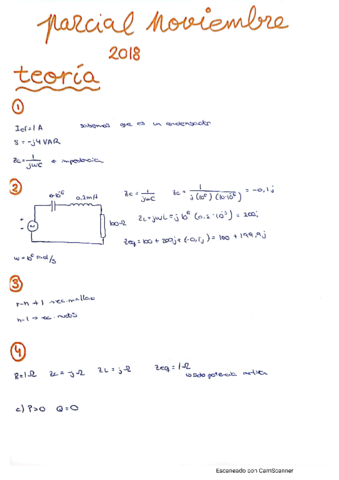 parcial Noviembre
2018
teoría
①
Ief=1A sabemos que es un condensador
S=-j4 VAR
Zc=1/jωC → impedancia
②
0,2mH
100Ω
ω=10⁶ rad/s
Zc=1/jωC Zc=1/j(10⁶)(10·10⁻⁶) = -0,1j
ZL=jωL=j10⁶(0.2·10⁻³)=200j
Zeq=100+200j+(-0,1j)=100+199,9j
③
r-n+1 → ec. mallas
n-1 → ec. nudos
④
R=1Ω Zc=-jΩ ZL=jΩ Zeq=1Ω
solo potencia activa
c) P>0 Q=0
Escaneado con CamScanner